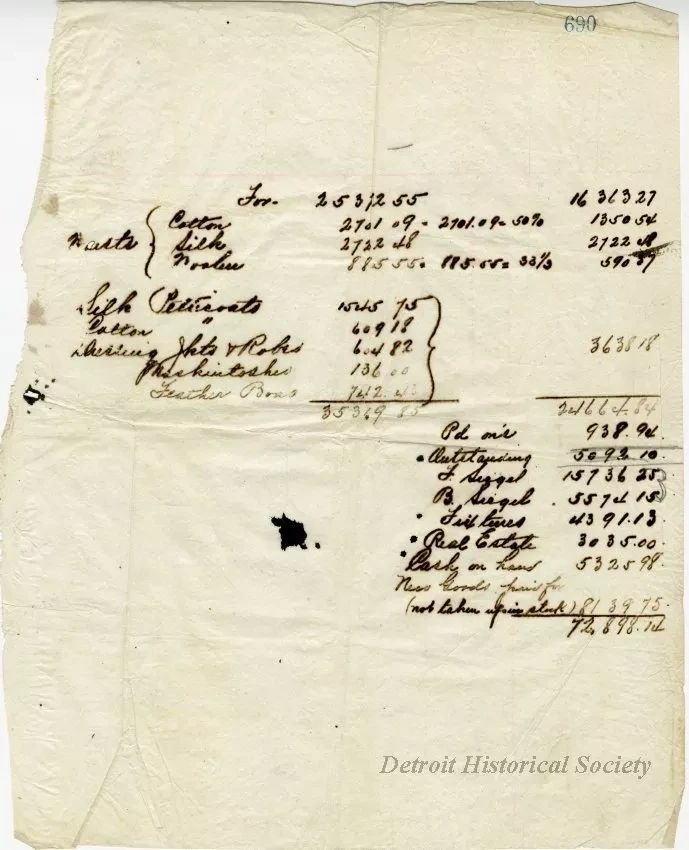 690
For- 25372 55 16 363 27
Waists { Cotton 2701 09 - 2701.09 = 50% 1350 54
Silk 2722 48 2722 48
Woolen 885 55 = 885.55 = 33⅓ 590 37
Silk Petticoats 1545 75
Cotton " 609 18
Dressing Jkts & Robes 604 82 363818
Mackintoshes 136 00
Feather Boas 742.43
35319 85 24664.84
Pd on's 938.94
Outstanding 5092.10
F. Siegel 15736 25
B. Siegel 5574 15
Fixtures 4391.13
Real Estate 3035.00
Cash on hand 5325 98
New Goods paid for
(not taken up in stock) 8139 75
72,898.14
Detroit Historical Society